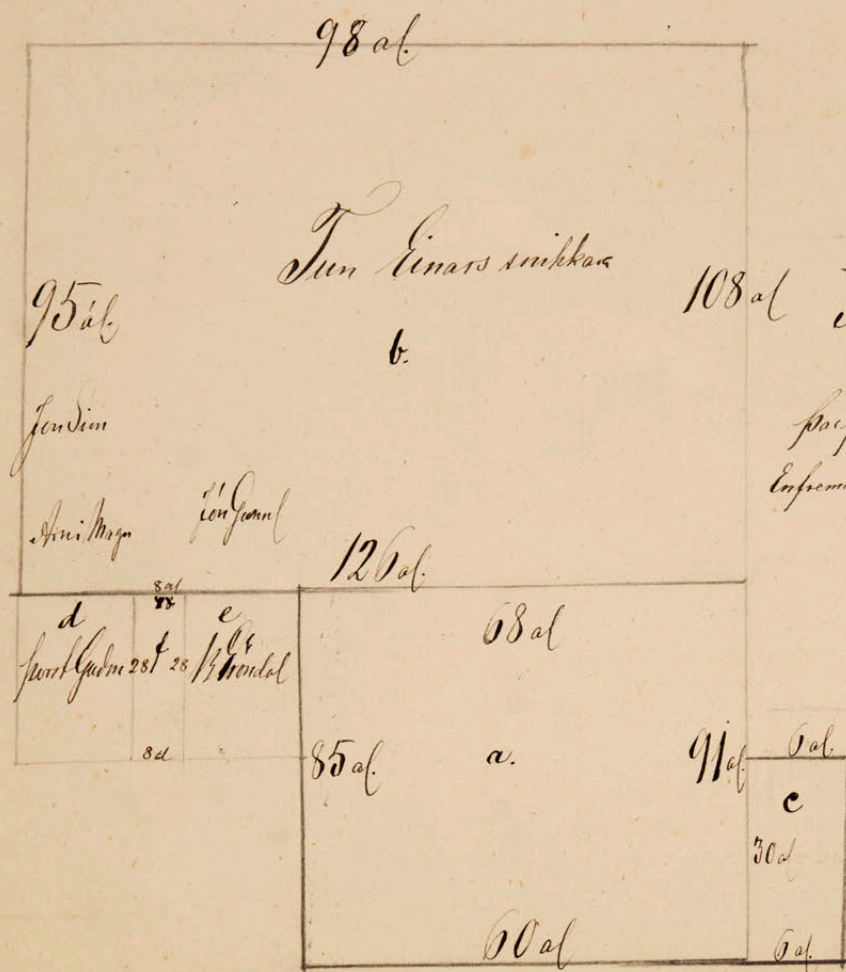 98 al.
Tún Einars snikkara
95 ál.
108 al
b.
Jón Sím
Arni Magn
Jón Gunnl
126 al.
8 al
d
e
f
Þorst Guðm
28
28
Gr
Bröndal
8 al
68 al
85 al.
a.
91 al
6 al.
c
30 al
60 al
6 al.